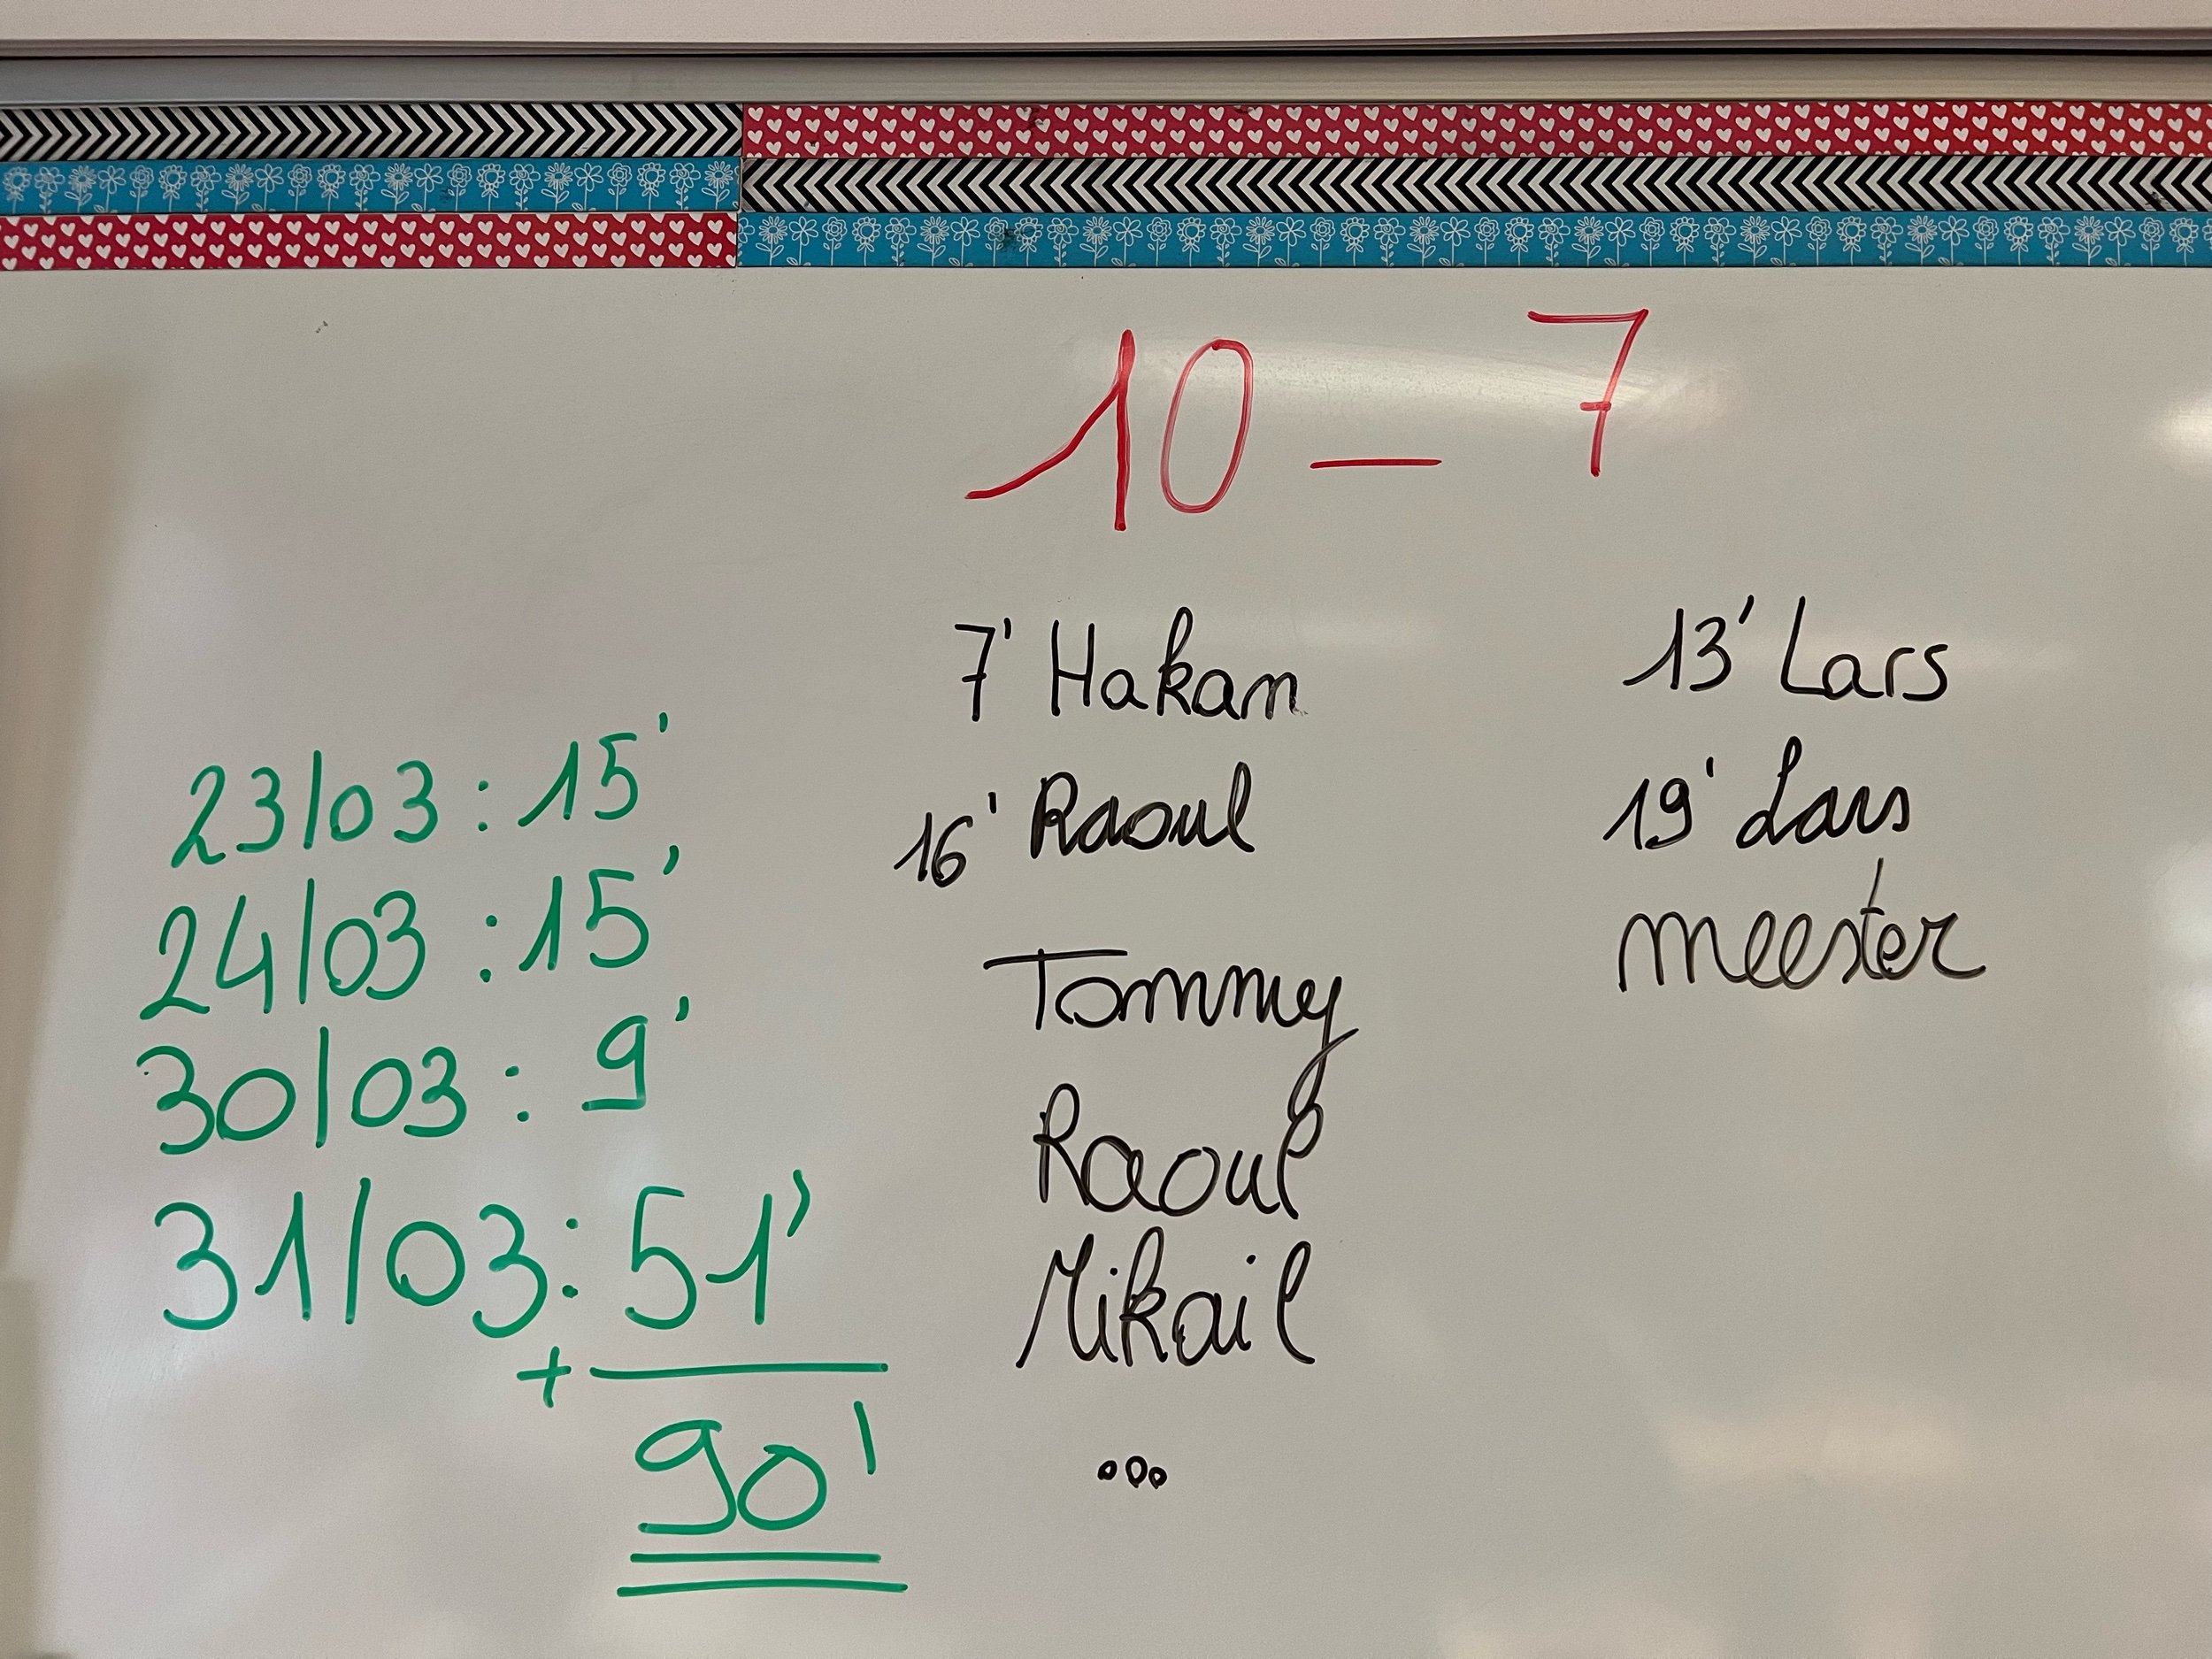 10 - 7
7' Hakan
16' Raoul
Tommy
Raoul
Mikail
...
13' Lars
19' Lars
meester
23/03 : 15'
24/03 : 15'
30/03 : 9'
31/03 : 51'
+
90'